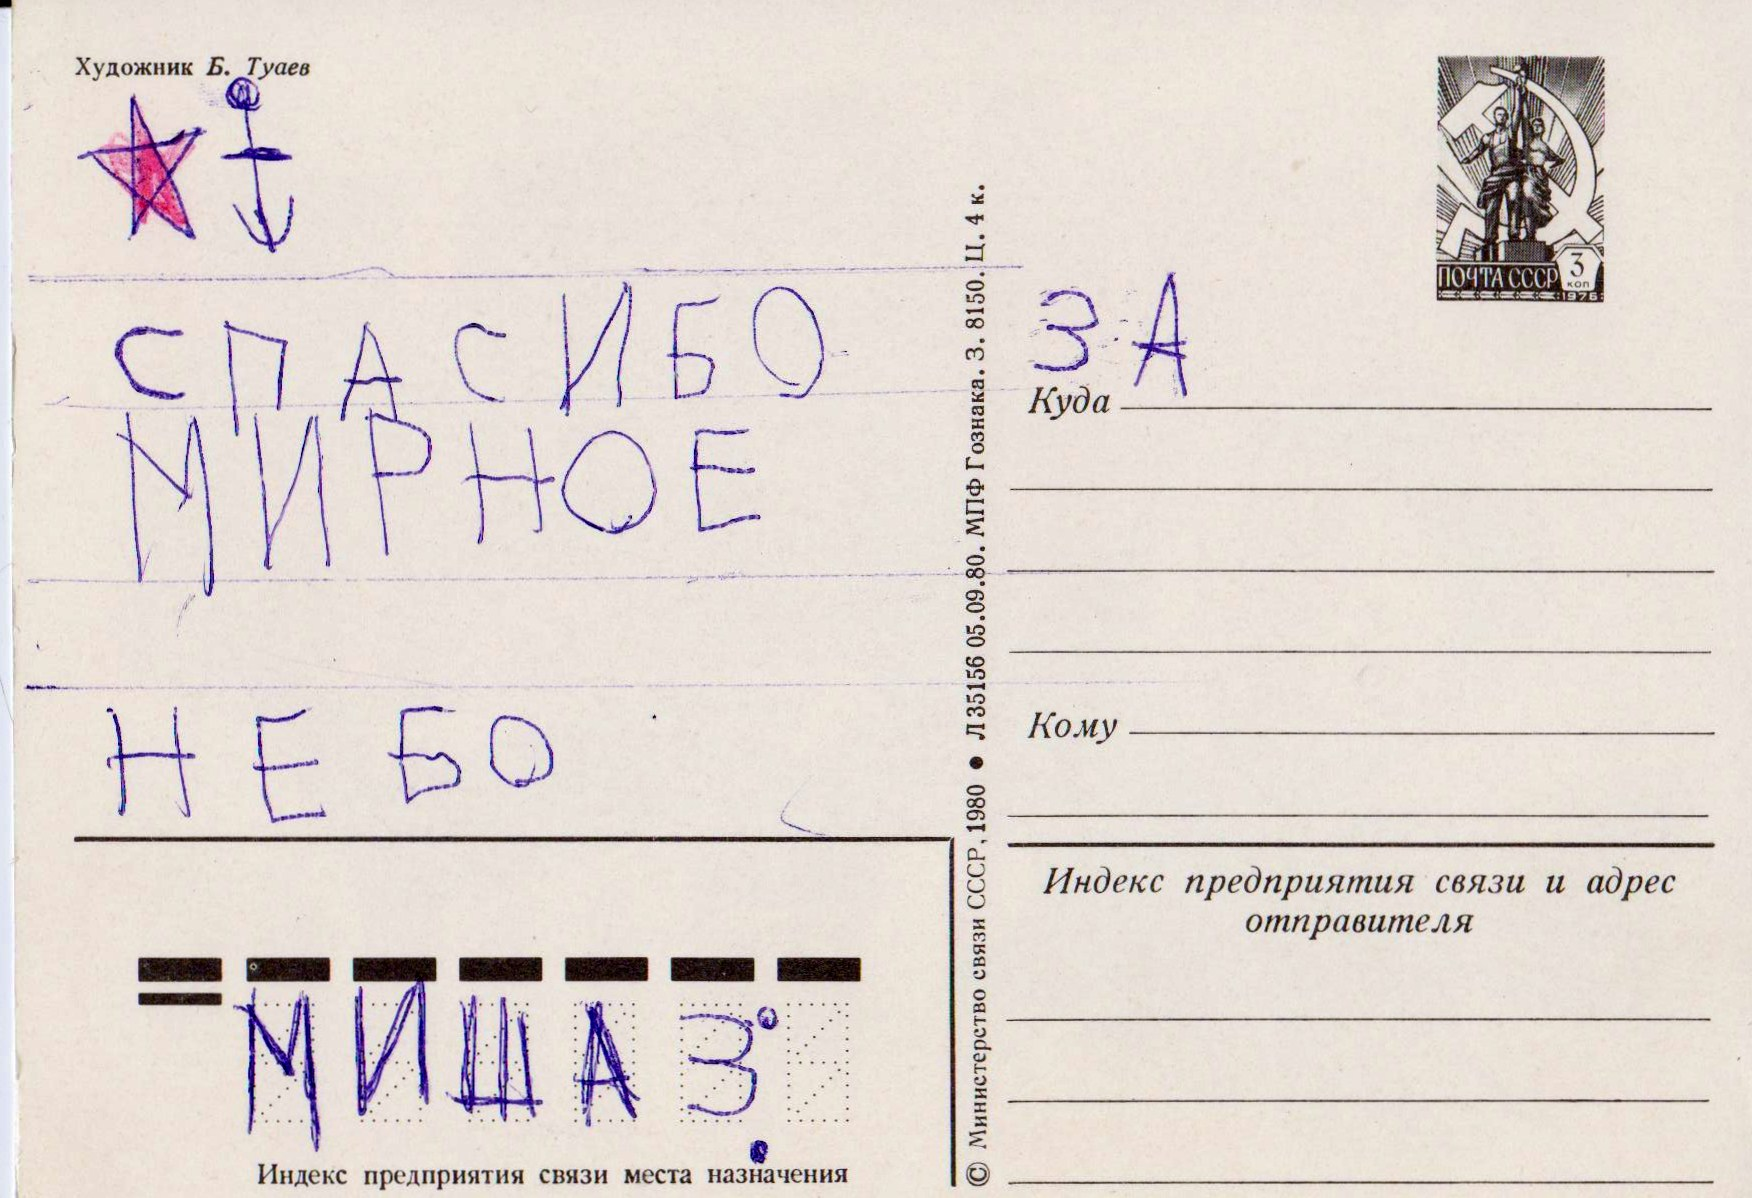 Художник Б. Туаев
СПАСИБО ЗА
МИРНОЕ
НЕБО
МИША З.
Индекс предприятия связи места назначения
© Министерство связи СССР, 1980 ● Л 35156 05.09.80. МПФ Гознака. З. 8150. Ц. 4 к.
ПОЧТА СССР 3 КОП
1976
Куда
Кому
Индекс предприятия связи и адрес
отправителя